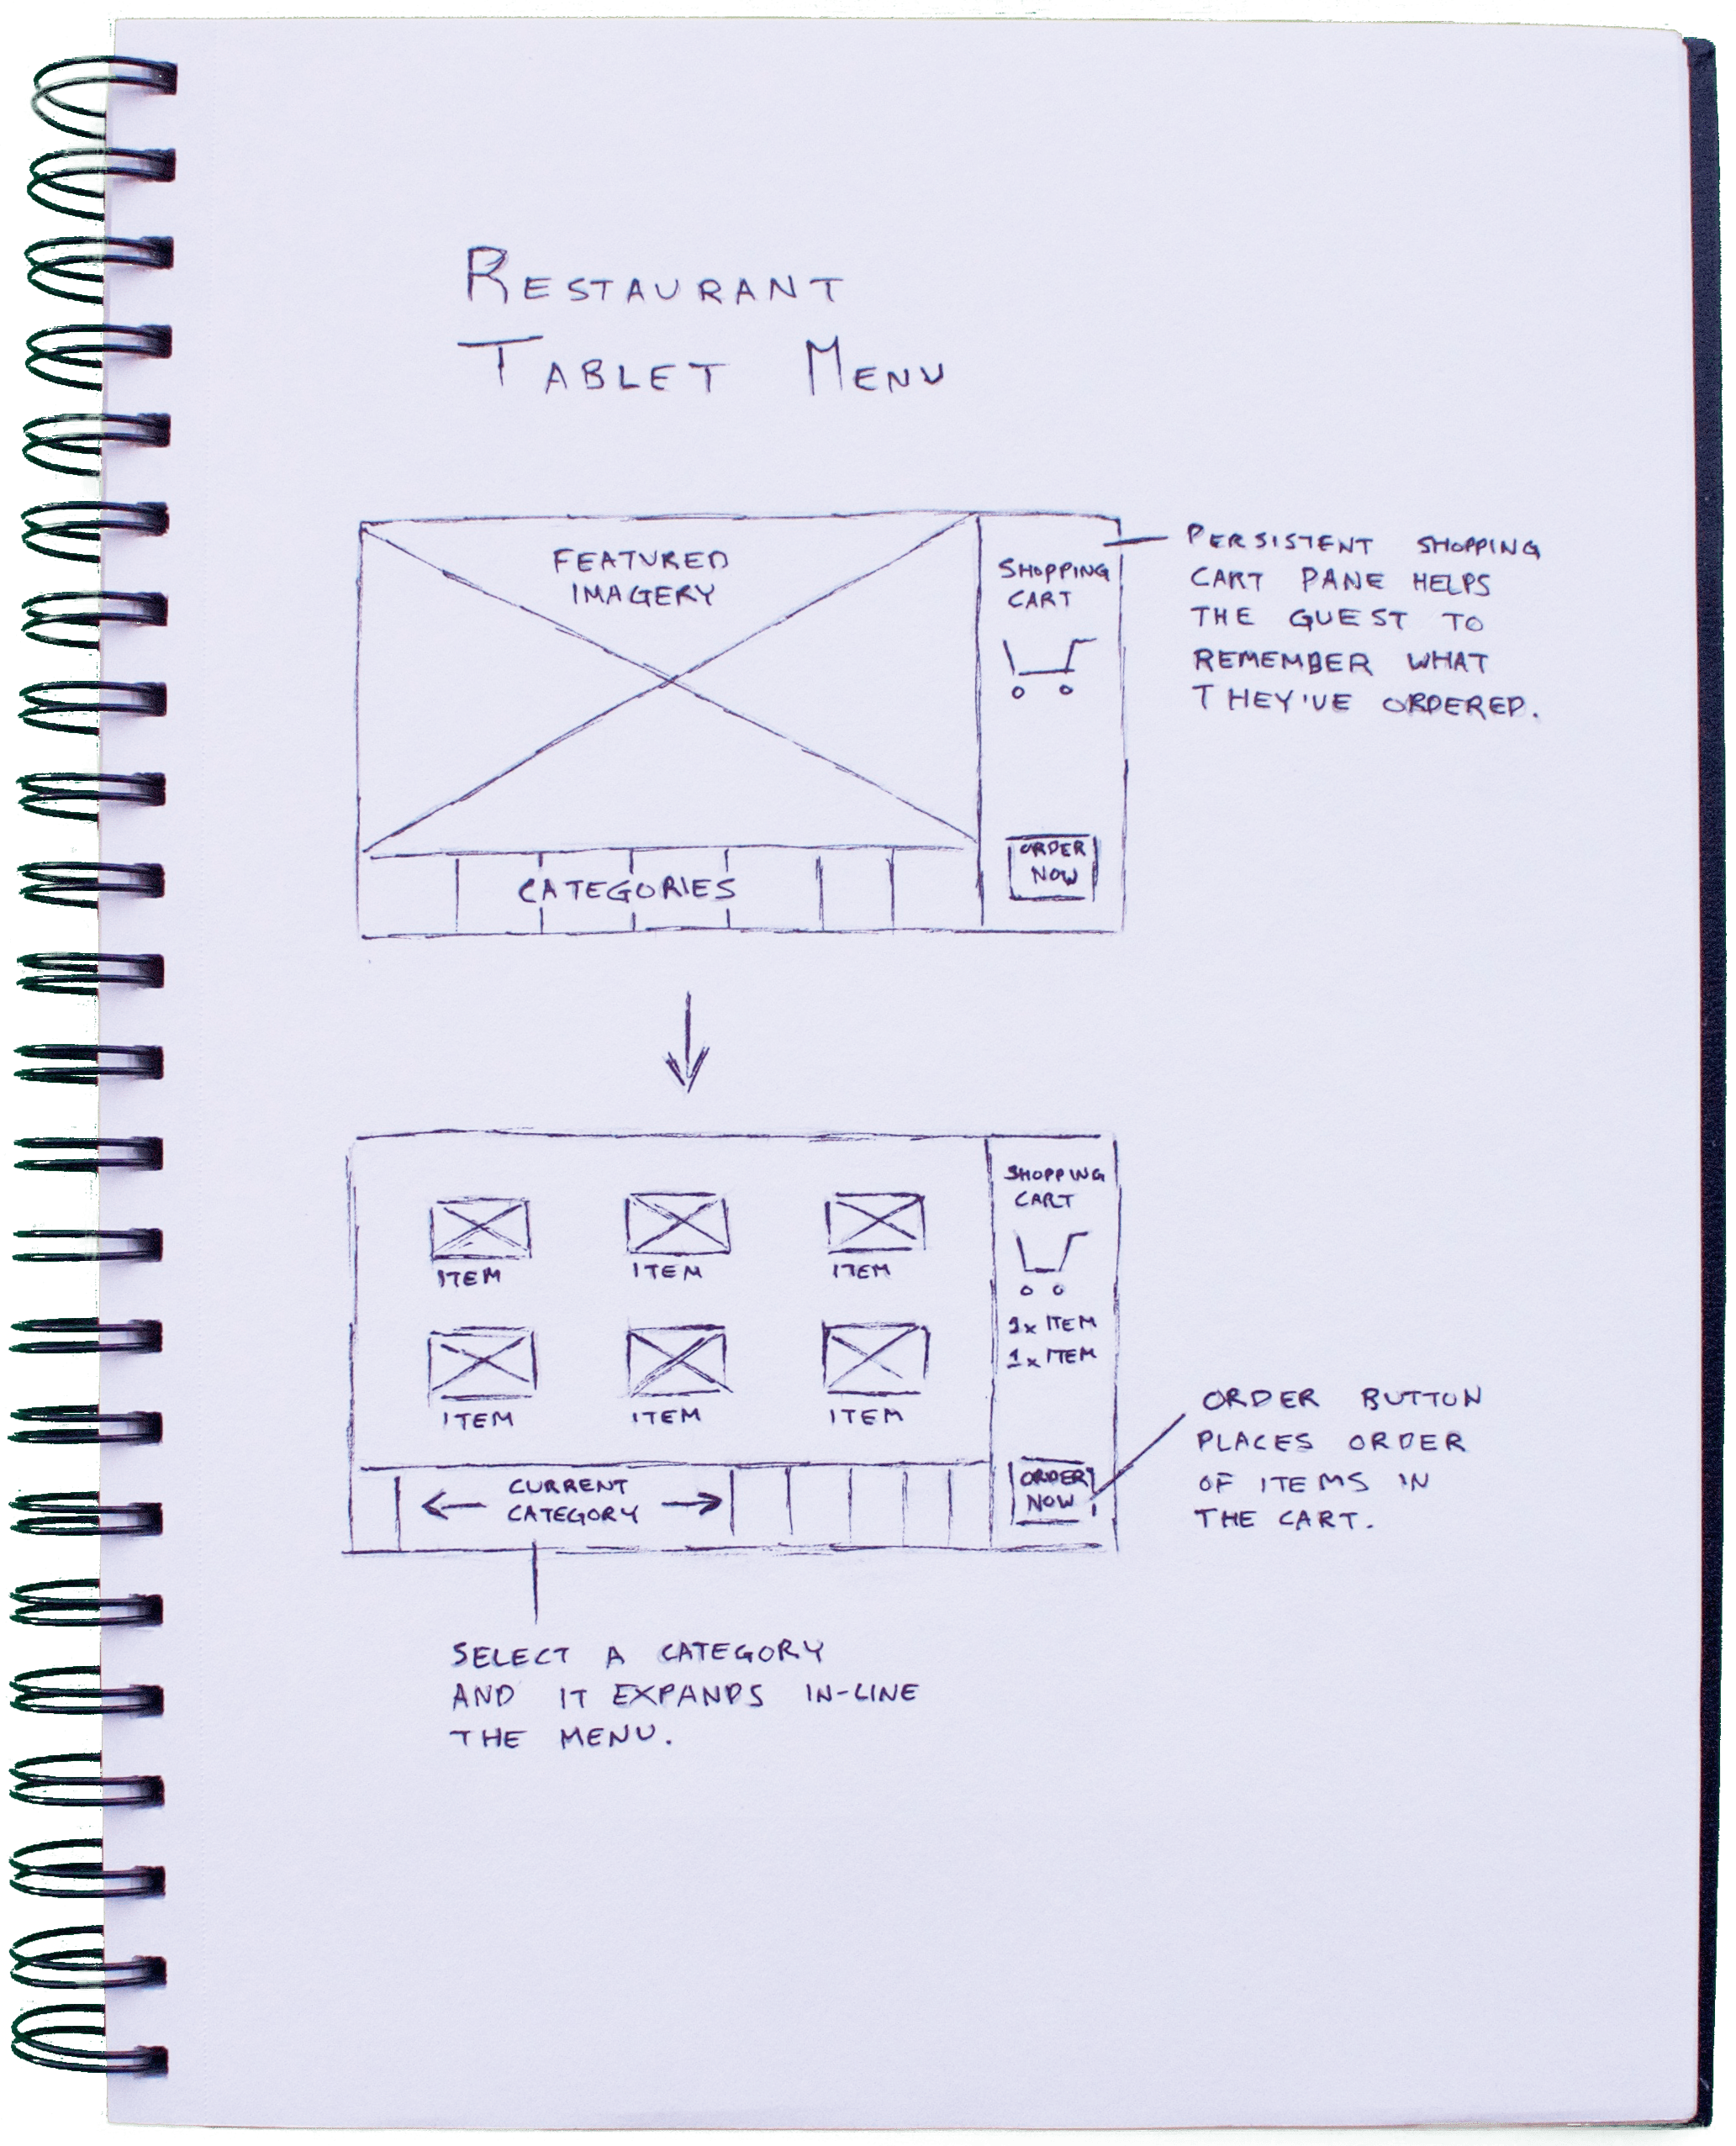 RESTAURANT
TABLET MENU
FEATURED
IMAGERY
SHOPPING
CART
PERSISTENT SHOPPING
CART PANE HELPS
THE GUEST TO
REMEMBER WHAT
THEY'VE ORDERED.
CATEGORIES
ORDER
NOW
ITEM ITEM ITEM
ITEM ITEM ITEM
SHOPPING
CART
1x ITEM
1x ITEM
CURRENT
CATEGORY
ORDER
NOW
ORDER BUTTON
PLACES ORDER
OF ITEMS IN
THE CART.
SELECT A CATEGORY
AND IT EXPANDS IN-LINE
THE MENU.